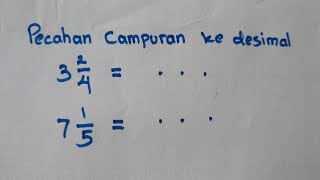 Pecahan Campuran ke desimal
3 2/4 = . . .
7 1/5 = . . .